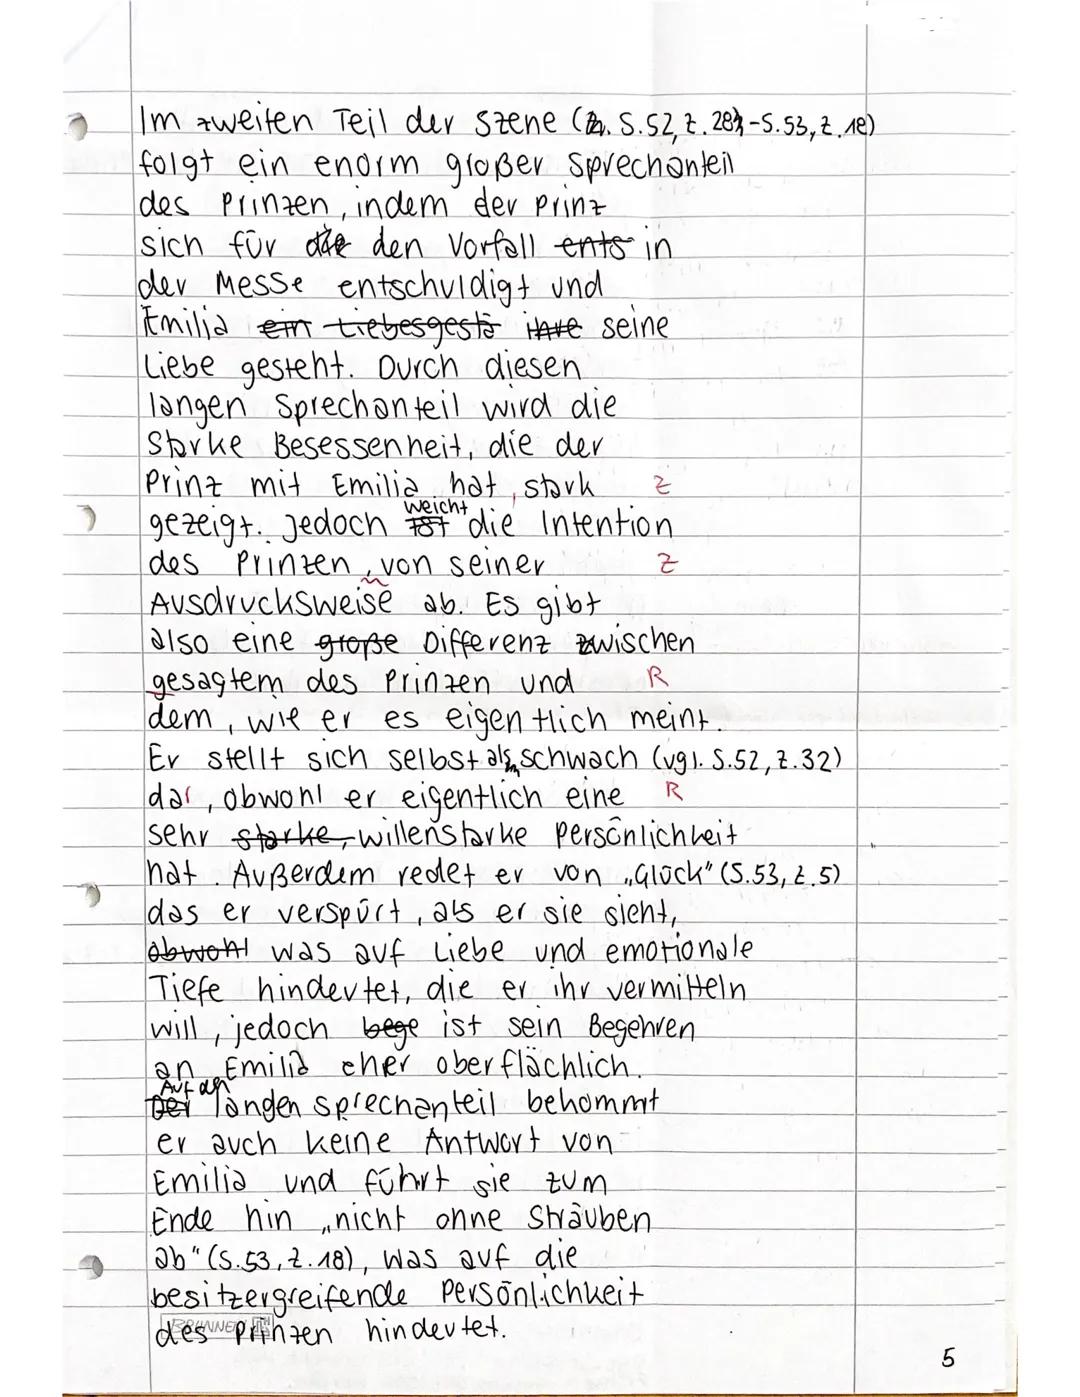 Im zweiten Teil der Szene (S.52, Z.28-S.53, Z.18)
folgt ein enorm großer Sprechanteil
des Prinzen, indem der Prinz
sich für die den Vorfall ents in
der Messe entschuldigt und
Emilia ein Liebesgestä ihre seine
Liebe gesteht. Durch diesen
langen Sprechanteil wird die
Starke Besessenheit, die der
Prinz mit Emilia hat, stark Z
gezeigt. Jedoch ist weicht die Intention
des Prinzen, von seiner Z
Ausdrucksweise ab. Es gibt
also eine große Differenz zwischen
gesagtem des Prinzen und R
dem, wie er es eigentlich meint.
Er stellt sich selbst als schwach (vgl. S.52, Z.32)
dar, obwohl er eigentlich eine R
sehr starke, willenstarke Persönlichkeit
hat. Außerdem redet er von „Glück" (S.53, Z.5)
das er verspürt, als er sie sieht,
obwohl was auf Liebe und emotionale
Tiefe hindeutet, die er ihr vermitteln
will, jedoch bege ist sein Begehren
an Emilia eher oberflächlich.
Der Auf den langen Sprechanteil bekommt
er auch keine Antwort von
Emilia und führt sie zum
Ende hin „nicht ohne Sträuben
ab" (S.53, Z.18), was auf die
besitzergreifende Persönlichkeit
des Prinzen hindeutet.
BRUNNEN
5